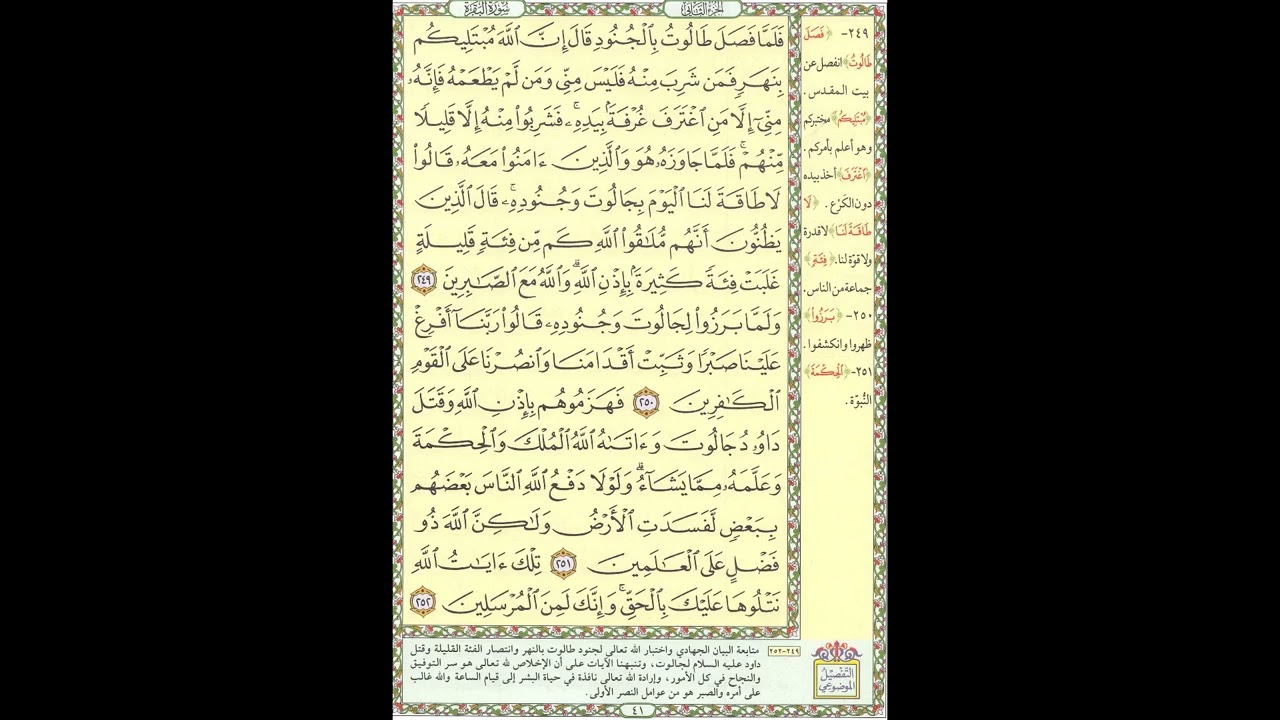 سُورَةُ البَقَرَةِ
الجُزْءُ الثَّانِي
فَلَمَّا فَصَلَ طَالُوتُ بِٱلْجُنُودِ قَالَ إِنَّ ٱللَّهَ مُبْتَلِيكُم
بِنَهَرٍ فَمَن شَرِبَ مِنْهُ فَلَيْسَ مِنِّى وَمَن لَّمْ يَطْعَمْهُ فَإِنَّهُۥ
مِنِّىٓ إِلَّا مَنِ ٱغْتَرَفَ غُرْفَةًۢ بِيَدِهِۦ ۚ فَشَرِبُوا۟ مِنْهُ إِلَّا قَلِيلًا
مِّنْهُمْ ۚ فَلَمَّا جَاوَزَهُۥ هُوَ وَٱلَّذِينَ ءَامَنُوا۟ مَعَهُۥ قَالُوا۟
لَا طَاقَةَ لَنَا ٱلْيَوْمَ بِجَالُوتَ وَجُنُودِهِۦ ۚ قَالَ ٱلَّذِينَ
يَظُنُّونَ أَنَّهُم مُّلَٰقُوا۟ ٱللَّهِ كَم مِّن فِئَةٍ قَلِيلَةٍ
غَلَبَتْ فِئَةً كَثِيرَةًۢ بِإِذْنِ ٱللَّهِ ۗ وَٱللَّهُ مَعَ ٱلصَّٰبِرِينَ ٢٤٩
وَلَمَّا بَرَزُوا۟ لِجَالُوتَ وَجُنُودِهِۦ قَالُوا۟ رَبَّنَآ أَفْرِغْ
عَلَيْنَا صَبْرًا وَثَبِّتْ أَقْدَامَنَا وَٱنصُرْنَا عَلَى ٱلْقَوْمِ
ٱلْكَٰفِرِينَ ٢٥٠ فَهَزَمُوهُم بِإِذْنِ ٱللَّهِ وَقَتَلَ
دَاوُۥدُ جَالُوتَ وَءَاتَىٰهُ ٱللَّهُ ٱلْمُلْكَ وَٱلْحِكْمَةَ
وَعَلَّمَهُۥ مِمَّا يَشَآءُ ۗ وَلَوْلَا دَفْعُ ٱللَّهِ ٱلنَّاسَ بَعْضَهُم
بِبَعْضٍ لَّفَسَدَتِ ٱلْأَرْضُ وَلَٰكِنَّ ٱللَّهَ ذُو
فَضْلٍ عَلَى ٱلْعَٰلَمِينَ ٢٥١ تِلْكَ ءَايَٰتُ ٱللَّهِ
نَتْلُوهَا عَلَيْكَ بِٱلْحَقِّ ۚ وَإِنَّكَ لَمِنَ ٱلْمُرْسَلِينَ ٢٥٢
٢٤٩- ﴿فَصَلَ
طَالُوتُ﴾ انفصل عن
بيت المقدس .
﴿مُبْتَلِيكُم﴾ مختبركم
وهو أعلم بأمركم .
﴿ٱغْتَرَفَ﴾ أخذ بيده
دون الكَرْع . ﴿لَا
طَاقَةَ لَنَا﴾ لا قدرة
ولا قوّة لنا. ﴿فِئَةٍ﴾
جماعة من الناس .
٢٥٠- ﴿بَرَزُوا۟﴾
ظهروا وانكشفوا .
٢٥١- ﴿ٱلْحِكْمَةَ﴾
النُّبوّة .
التَّفصِيل
الموضوعي
٢٤٩-٢٥٢ متابعة البيان الجهادي واختبار الله تعالى لجنود طالوت بالنهر وانتصار الفئة القليلة وقتل
داود عليه السلام لجالوت، وتنبهنا الآيات على أن الإخلاص لله تعالى هو سر التوفيق
والنجاح في كل الأمور، وإرادة الله تعالى نافذة في حياة البشر إلى قيام الساعة والله غالب
على أمره والصبر هو من عوامل النصر الأولى.
٤١